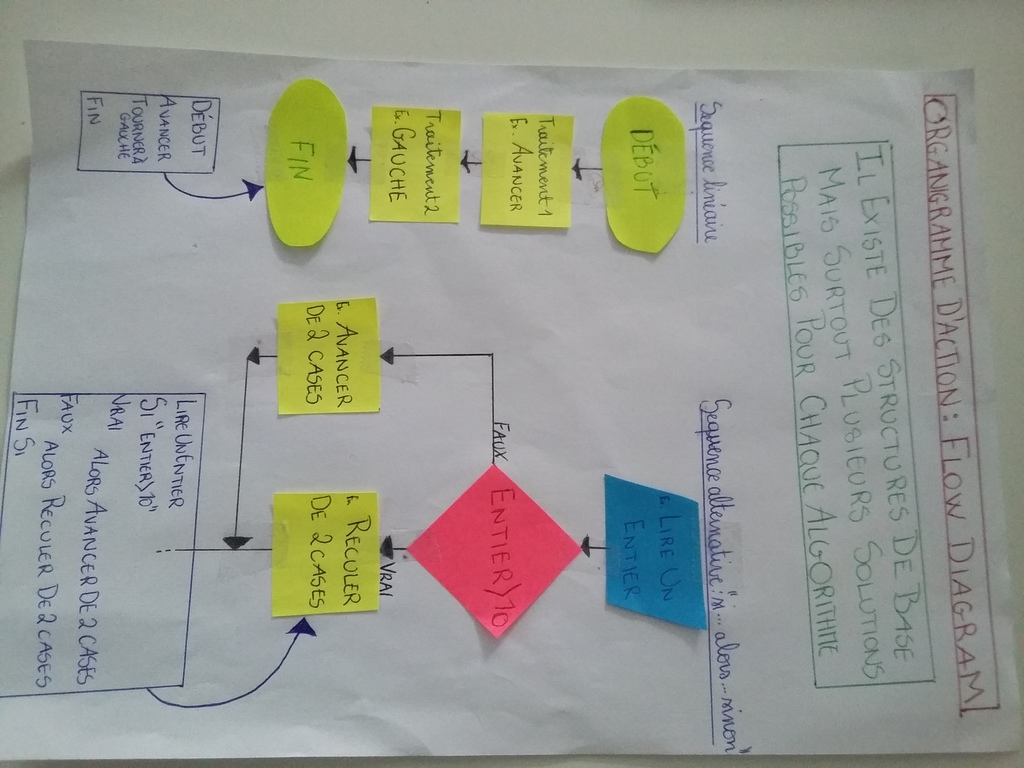 ORGANIGRAMME D'ACTION: FLOW DIAGRAM
IL EXISTE DES STRUCTURES DE BASE
MAIS SURTOUT PLUSIEURS SOLUTIONS
POSSIBLES POUR CHAQUE ALGORITHME
Sequence linéaire
DÉBUT
Traitement 1
Ex. AVANCER
Traitement 2
Ex. GAUCHE
FIN
DÉBUT
AVANCER
TOURNER À
GAUCHE
FIN
Sequence alternative: "si... alors... sinon"
Ex. LIRE UN
ENTIER
ENTIER>10
FAUX
VRAI
Ex. AVANCER
DE 2 CASES
Ex. RECULER
DE 2 CASES
LIRE UN ENTIER
SI "ENTIER>10"
VRAI ALORS AVANCER DE 2 CASES
FAUX ALORS RECULER DE 2 CASES
FIN SI